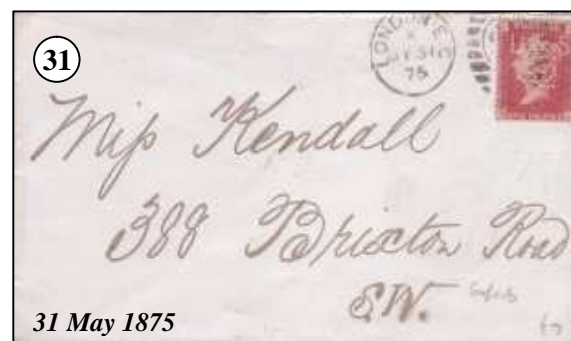 31
LONDON E.C
75
Miss Kendall
388 Brixton Road
S.W.
31 May 1875